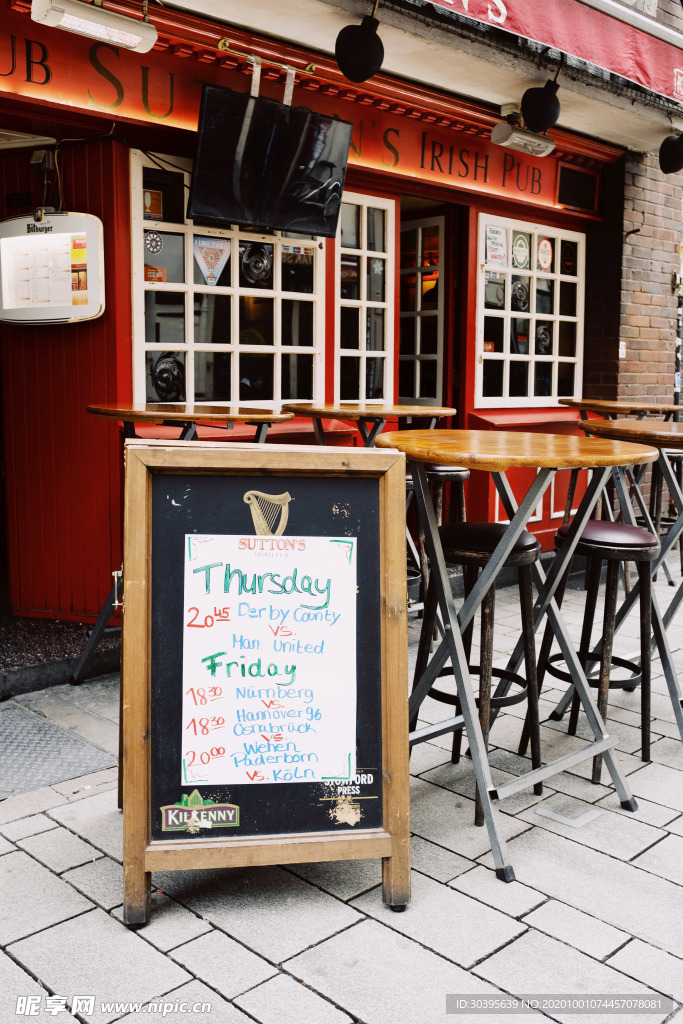 PUB SUTTON'S IRISH PUB
Bitburger
SUTTON'S
IRISH PUB
Thursday
20 45 Derby County
vs.
Man United
Friday
18 30 Nürnberg
vs.
18 30 Hannover 96
Osnabrück
vs
20 00 Wehen
Paderborn
vs. Köln
KILKENNY
PRESS
昵享网 www.nipic.cn
ID:30395639 NO:20201001074457078081